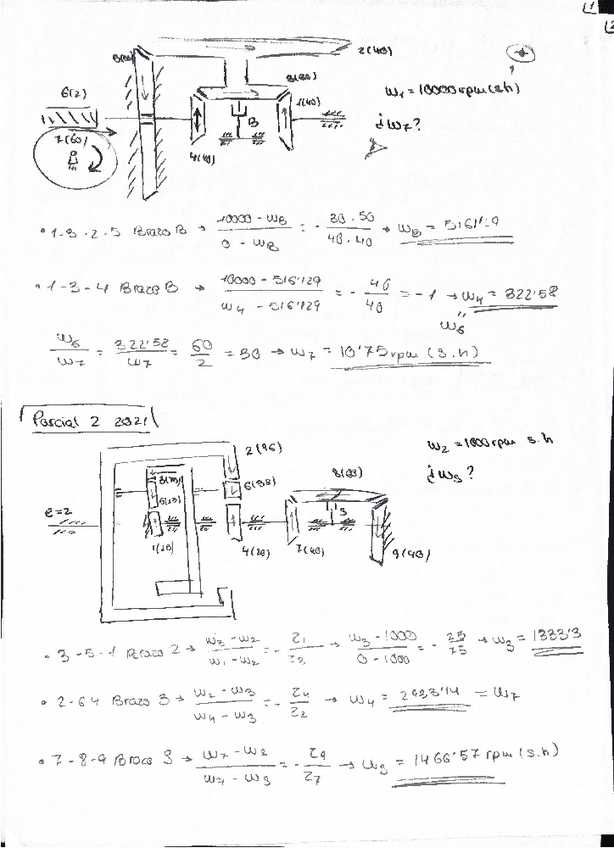 2(48)
6(2)
3(30)
1(40)
ω₁ = 10000 rpm (s.h)
7(60)
B
¿ω7?
• 1-3-2-5 Brazo B → (10000 - ωB)/(0 - ωB) = - (30·50)/(40·40) → ωB = 5161'29
• 1-3-4 Brazo B → (10000 - 5161'29)/(ω4 - 5161'29) = - 40/40 = -1 → ω4 = 322'58
" ω6
ω6/ω7 = 322'58/ω7 = 60/2 = 30 → ω7 = 10'75 rpm (s.h)
Parcial 2 2021
ω2 = 1000 rpm s.h
2(96)
8(33)
¿ωs?
e=2
1(20)
4(20)
7(40)
9(40)
• 3-5-1 Brazo 2 → (ω3 - ω2)/(ω1 - ω2) = - z1/z3 → (ω3 - 1000)/(0 - 1000) = - 25/75 → ω3 = 1333'3
• 2-6-4 Brazo 3 → (ω2 - ω3)/(ω4 - ω3) = - z4/z2 → ω4 = 2933'14 = ω7
• 7-8-9 Brazo S → = - z9/z7 → ωs = 1466'57 rpm (s.h)